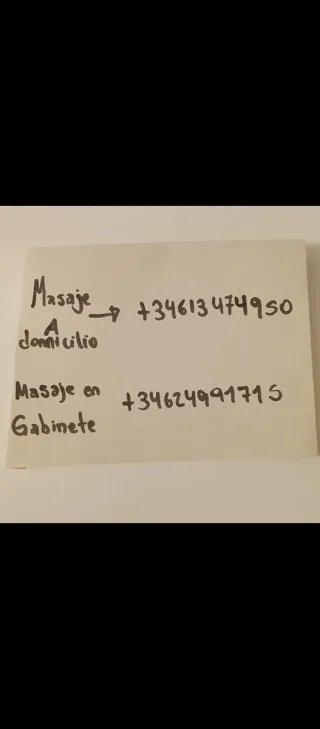 Masaje
A → +34613474950
domicilio
Masaje en +34624991715
Gabinete